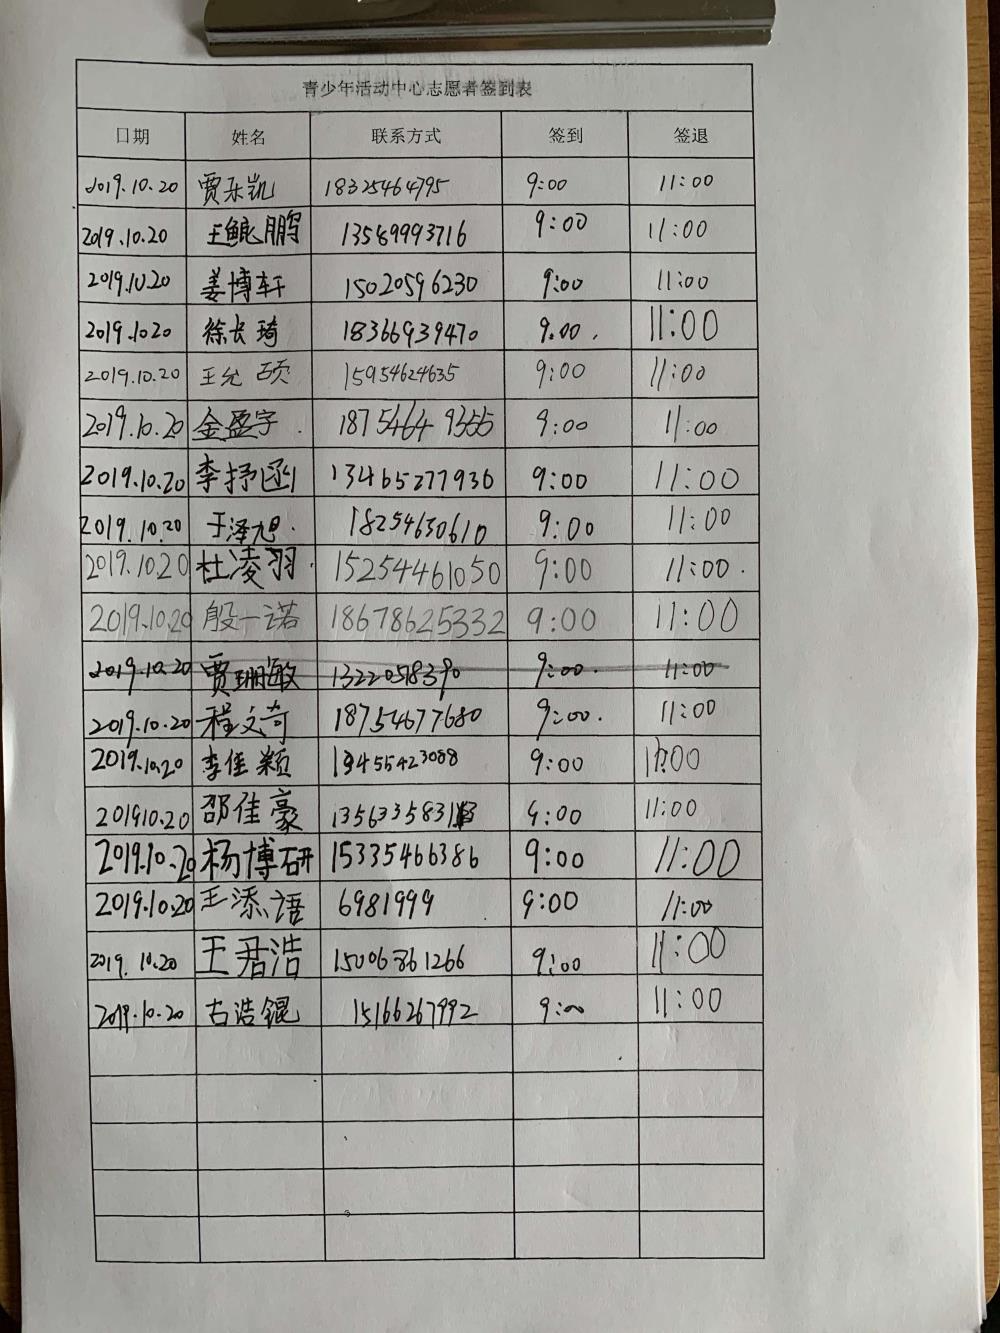 青少年活动中心志愿者签到表
日期 姓名 联系方式 签到 签退
2019.10.20 贾乐凯 18325464795 9:00 11:00
2019.10.20 王鲲鹏 13589993716 9:00 11:00
2019.10.20 姜博轩 15020596230 9:00 11:00
2019.1020 徐长琦 18366939470 9.00. 11:00
2019.10.20 王允硕 15954624635 9:00 11:00
2019.10.20 金盈宇. 18754649355 9:00 11:00
2019.10.20 李抒函 13465277936 9:00 11:00
2019.10.20 于泽旭. 18254630610 9:00 11:00
2019.10.20 杜凌羽. 15254461050 9:00 11:00.
2019.10.20 殷一诺 18678625332 9:00 11:00
2019.10.20 贾珊敏 13220518390 9:00. 11:00
2019.10.20 程文奇 18754677680 9:00. 11:00
2019.10.20 李佳颖 13455423088 9:00 11:00
201910.20 邵佳豪 9:00 11:00
2019.10.20 杨博研 15335466386 9:00 11:00
2019.10.20 王添语 6981999 9:00 11:00
2019.10.20 王君浩 15006861266 9:00 11:00
2019.10.20 古浩锟 15166267992 9:00 11:00